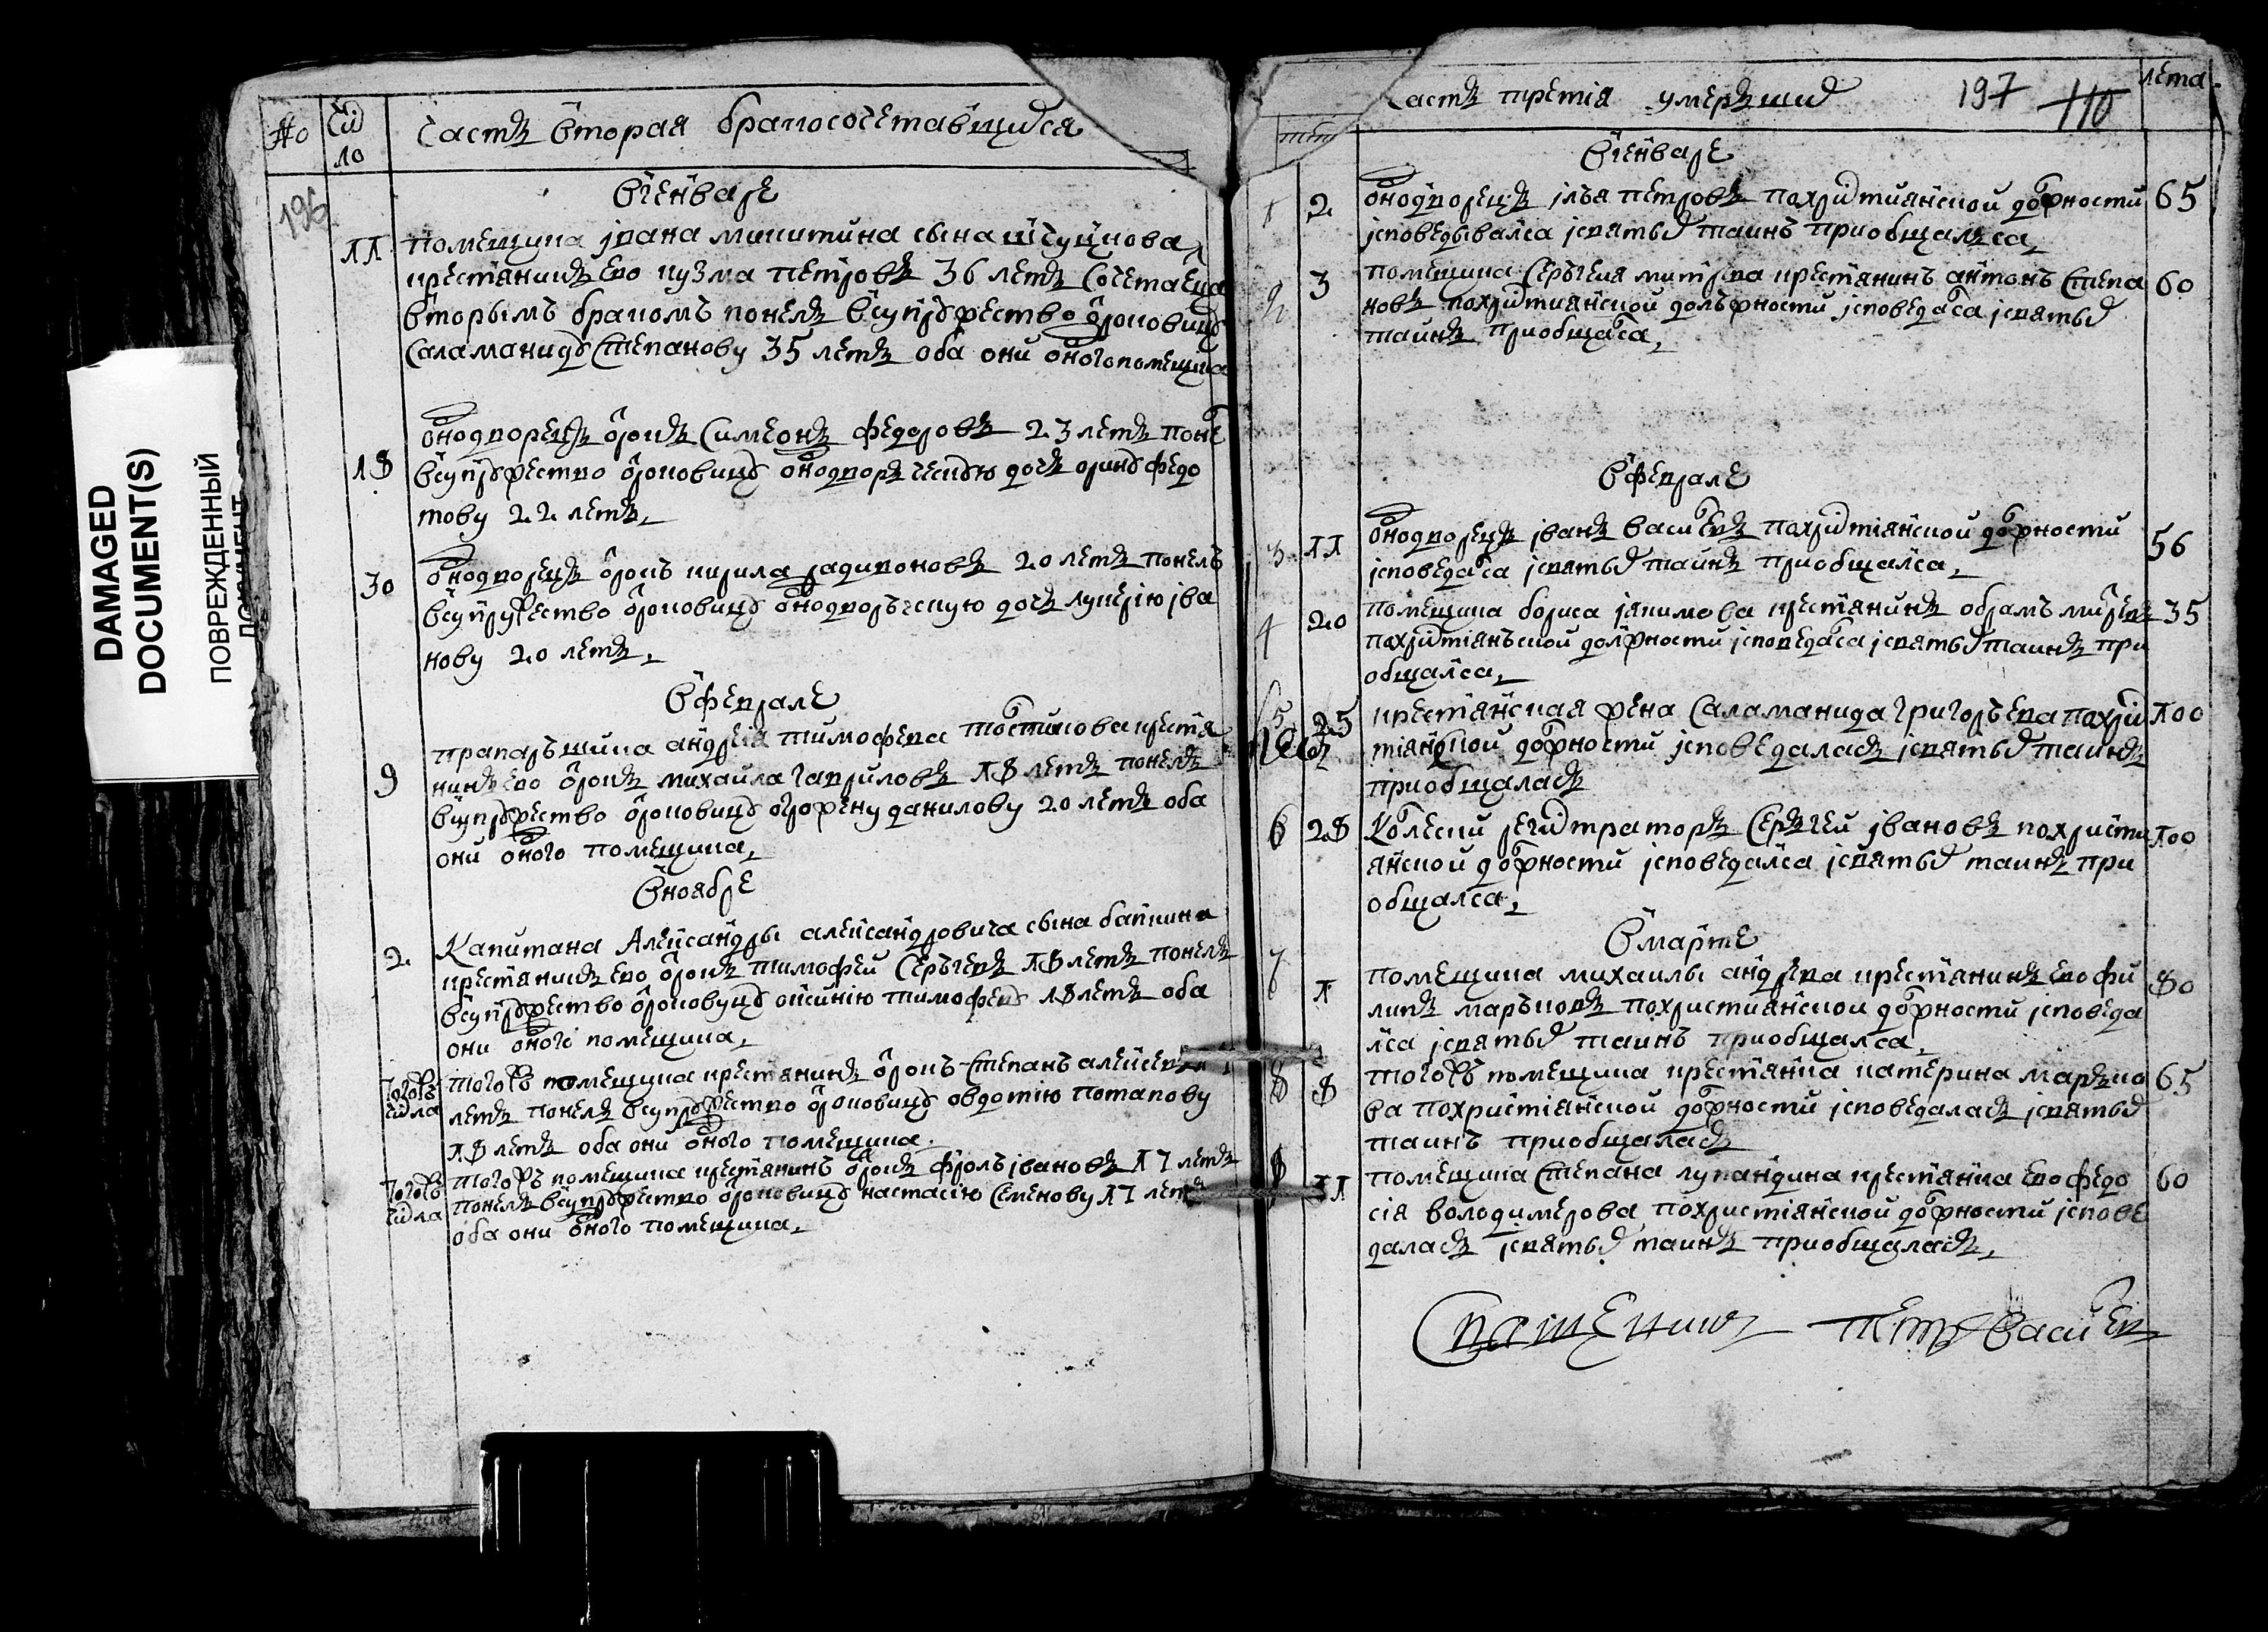 DAMAGED
DOCUMENT(S)
ПОВРЕЖДЕННЫЙ
ДОКУМЕНТ
№
Число
Часть вторая бракосочетавшихся
196
В генваре
11 помещика Ивана Микитина сына
крестянинъ ево Кузма Петровъ 36 летъ сочетался
вторымъ бракомъ понелъ в супружество отроковицу
Саламаниду Степанову 35 летъ оба они оного помещика
18 однодворецъ отрокъ Симеонъ Федоровъ 23 летъ понелъ
в супружество отроковицу однодворческую дочь Орину Федо
тову 22 летъ
30 однодворецъ отрокъ Кирила Радивоновъ 20 летъ понелъ
в супружество отроковицу однодворческую дочь Лукерію Iва
нову 20 летъ
В феврале
9 прапорщика Андрея Тимофеева крестя
нинъ ево отрокъ Михайла Гавриловъ 18 летъ понелъ
в супружество отроковицу Огрофену Данилову 20 летъ оба
они оного помещика
В ноябре
2 капитана Александры Александровича сына
крестянинъ ево отрокъ Тимофей Сергеевъ 18 летъ понелъ
в супружество отроковицу Оксинію Тимофееву 18 летъ оба
они оного помещика
того ж числа того жъ помещика крестянинъ отрокъ Степанъ Алексеевъ
летъ понелъ в супружество отроковицу Овдотію Потапову
18 летъ оба они оного помещика
того ж числа того жъ помещика крестянинъ отрокъ Фролъ Iвановъ 17 летъ
понелъ в супружество отроковицу Настасію Семенову 17 летъ
оба они оного помещика
Часть третiя умершихъ 197 110 лета
В генваре
1 2 однодворецъ Iлья Петровъ по христианской должности 65
исповедывался и святыхъ таинъ приобщался
2 3 помещика Сергея крестянинъ Антонъ Степа 60
новъ по христианской должности исповедался и святыхъ
таинъ приобщался
В феврале
3 11 однодворецъ Iванъ Васильевъ по христианской должности 56
исповедался и святыхъ таинъ приобщался
4 20 помещика Бориса Якимова крестянинъ 35
по христианской должности исповедался и святыхъ таинъ при
общался
5 25 крестянская жена Саламанида Григорьева по хрис 100
тианской должности исповедалась и святыхъ таинъ
приобщалась
6 28 Колески регистраторъ Сергей Iвановъ по христи 100
анской должности исповедался и святыхъ таинъ при
общался
В марте
7 1 помещика Михайлы Андреева крестянинъ ево Фи 80
липъ Марковъ по христианской должности исповеда
лся и святыхъ таинъ приобщался
8 8 того жъ помещика крестянка Катерина Марко 65
ва по христианской должности исповедалась и святыхъ
таинъ приобщалась
31 помещика Степана Лупандина крестянка ево Федо 60
сiя Володимерова по христианской должности испове
далась и святыхъ таинъ приобщалась
Священникъ Петръ Васильевъ